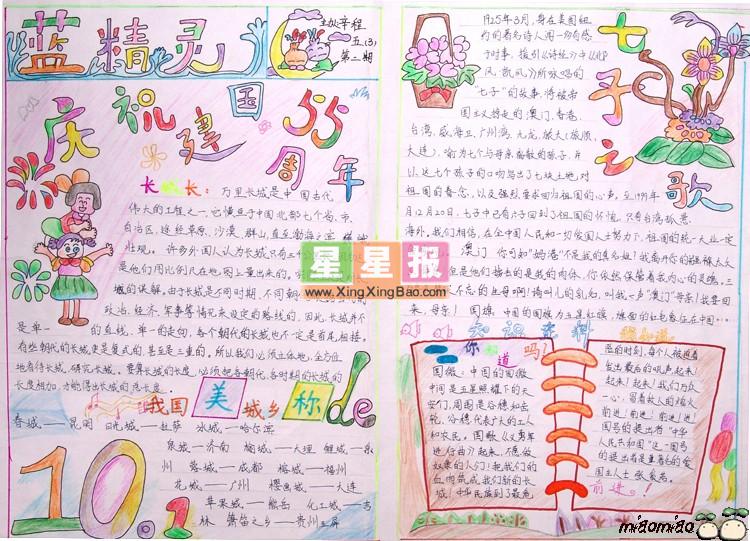 蓝精灵
五(3)
第二期
庆祝建国55周年
长城长：万里长城是中国古代
伟大的工程之一，它横亘于中国北部七个省、市、
自治区，途经草原、沙漠、群山，直至渤海之滨
壮观。许多外国人认为长城只有三
是他们用比例尺在地图上量出来的。
城的误解。由于长城是不同时期、不同朝
政治、经济、军事等情况来设定的路线的，因此，长城并不
是单一的直线、单一的走向，各个朝代的长城也不一定是首尾相接。
有些朝代的长城使是复式的，甚至是三重的。所以我们必须立体地、全方位
地看待长城、研究长城。要算长城的长度，必须把各朝代、各时期的长城的
长度相加，才能得出长城的总长度。
我国美城乡称de
春城——昆明 日光城——拉萨 冰城——哈尔滨
泉城——济南 榆城——大理 鲤城——泉
州 蓉城——成都 榕城——福州
花城——广州 樱画城——大连
苹果城——熊岳 化工城——吉
林 箫笛之乡——贵州玉屏
10.1
七子之歌
1925年3月，身在美国纽
约的著名诗人闻一多有感
于时事，援引《诗经》中《邶
风·凯风》所咏唱的
"七子"的故事，将被帝
国主义掠走的澳门、香港、
台湾、威海卫、广州湾、九龙、旅大(旅顺、
大连)，喻为七个与母亲离散的孩子，并
以这七个孩子的口吻写出了七块土地对
祖国的眷念，以及强烈要求回归祖国的心声。至1999年
12月20日，七子中已有六子回到了祖国的怀抱，只有台湾孤悬
海外。我们相信，在全中国人民和一切爱国人士努力下，祖国的统一大业一定
澳门 你可知"妈港"不是我的真名姓？我离开你的襁褓太久
但是他们掳去的是我的肉体，你依然保管着我内心的灵魂。三
不忘的生母啊！请叫儿的乳名，叫我一声"澳门"母亲！我要回
来，母亲！ 国旗：中国的国旗为五星红旗，旗面的红色象征
你知道吗！
国徽：中国的国徽
中间是五星照耀下的天
安门，周围是谷穗和齿
轮，谷穗代表广大的工人
和农民。国歌《义勇军
进行曲》起来，不愿做
奴隶的人们！把我们的
血肉筑成我们新的长
城！中华民族到了最危
险的时刻，每个人被迫着
发出最后的吼声，起来！
起来！起来！我们万众
一心，冒着敌人的炮火
前进！前进！前进！进！
国号的提出者"中华
人民共和国"这一国号
的提出者是著名的爱
国主人士张奚若。
前进。！
星星报
www.XingXingBao.com
miaomiao